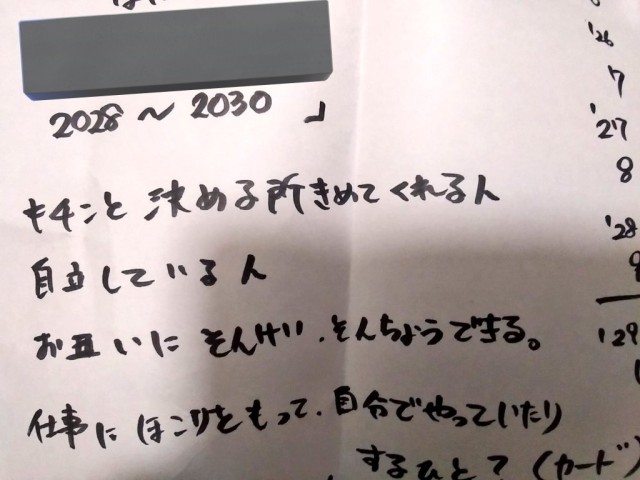 2028〜2030 」
キチンと 決める所きめてくれる人
自立している人
お互いに そんけい、そんちょうできる。
仕事にほこりをもって、自分でやっていたり
するひと? (カード)
'26
7
'27
8
'28
9
'29